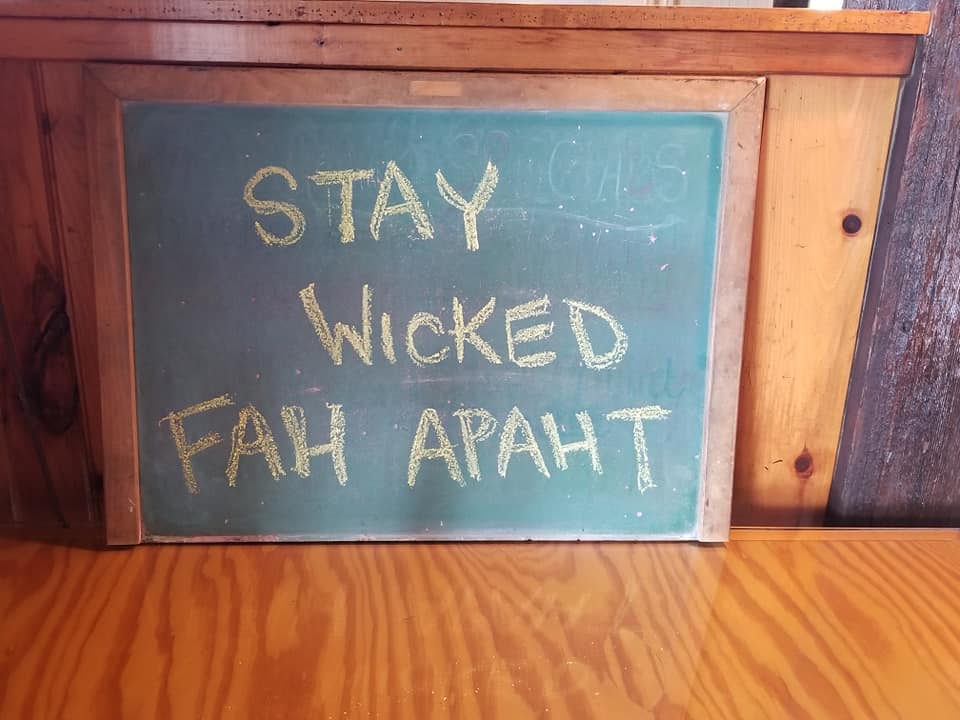 STAY
WICKED
FAH APAHT